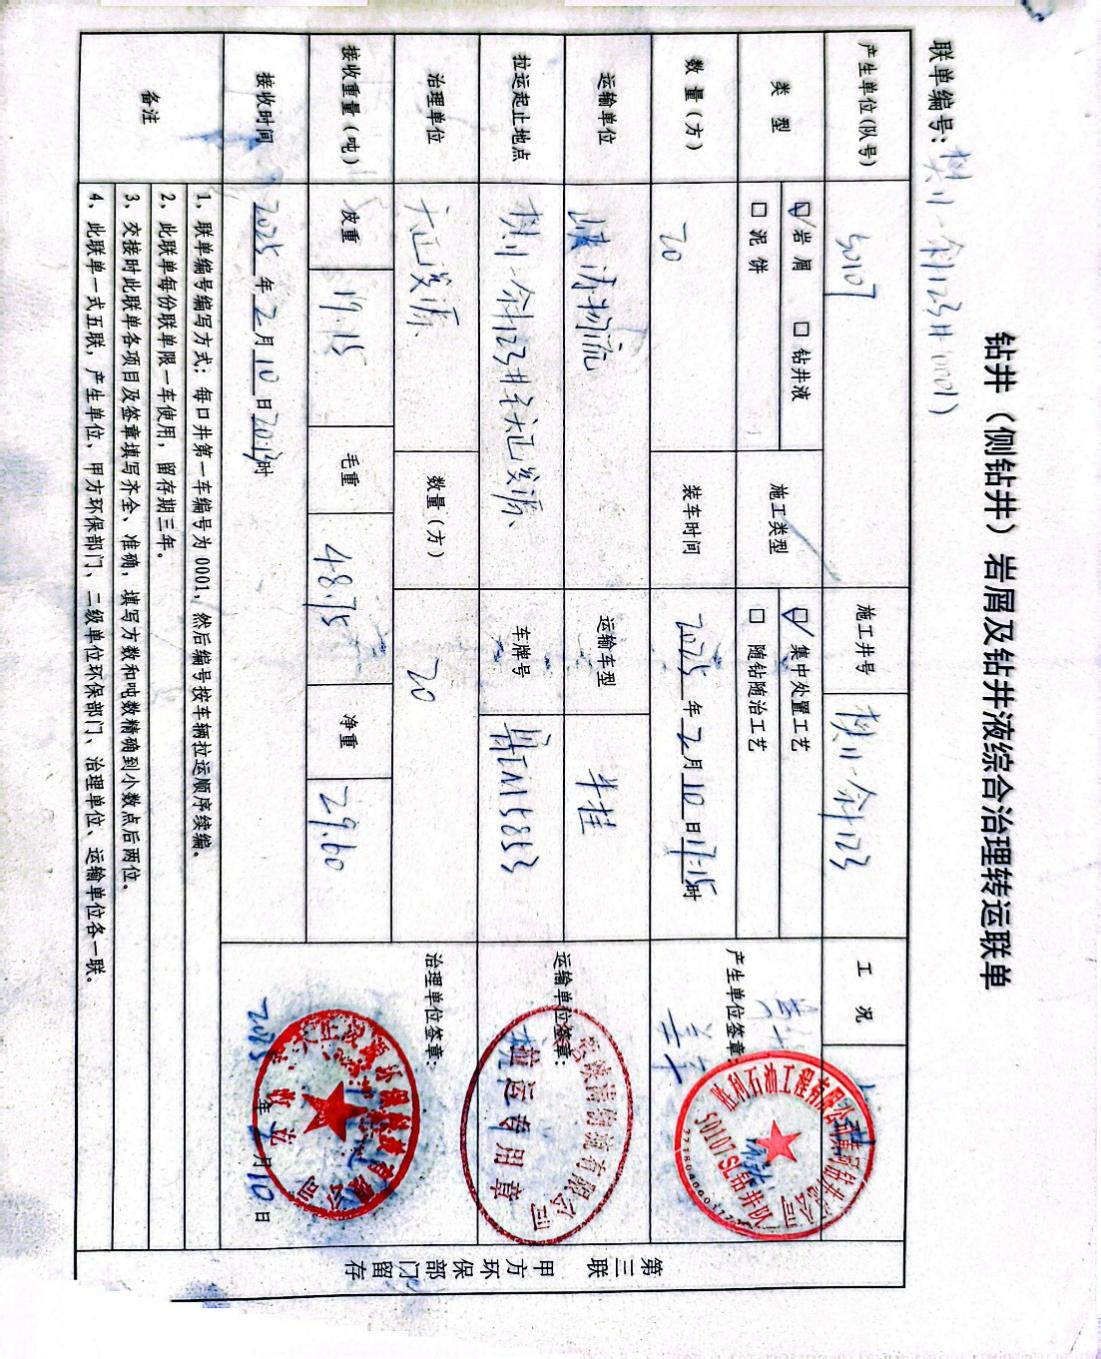 钻井（侧钻井）岩屑及钻井液综合治理转运联单
联单编号：樊川-斜123井0001)
产生单位(队号) 50107 施工井号 樊川-斜123 工况
类型 ☑岩屑 □钻井液 □泥饼 施工类型 ☑集中处置工艺 □随钻随治工艺
数量（方） 20 装车时间 2025年2月10日17:15时 产生单位签章：
运输单位 清物流 运输车型 半挂
拉运起止地点 樊川-斜123井至大正发源 车牌号 M5853 运输单位签章：
治理单位 大正发源 数量（方） 20 治理单位签章：
接收重量（吨） 皮重 19.15 毛重 48.75 净重 29.60
接收时间 2025年2月10日20:19时 2025年2月10日
备注
1、联单编号编写方式：每口井第一车编号为0001，然后编号按车辆拉运顺序续编。
2、此联单每份联单限一车使用，留存期三年。
3、交接时此联单各项目及签章填写齐全、准确，填写方数和吨数精确到小数点后两位。
4、此联单一式五联，产生单位、甲方环保部门、二级单位环保部门、治理单位、运输单位各一联。
第三联 甲方环保部门留存
胜利石油工程有限公司黄河钻井总公司
50107SL钻井队
物流有限公司
拉运专用章